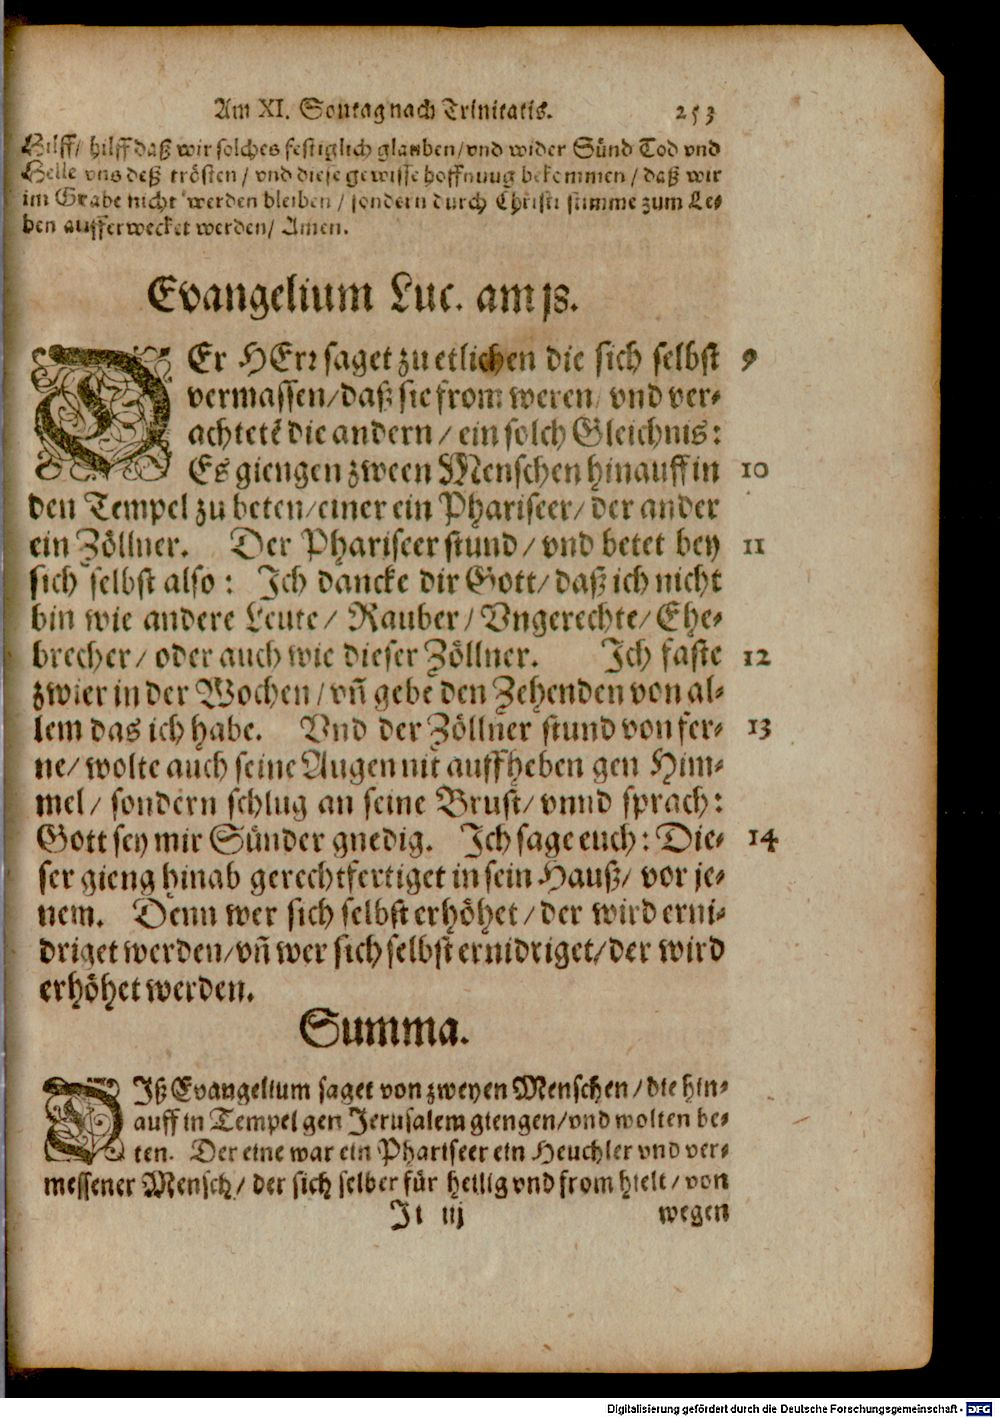 Am XI. Sontag nach Trinitatis. 253
Hilff/ hilff daß wir solches festiglich glauben/vnd wider Sünd Tod vnd
Helle vns deß trösten/ vnd diese gewisse hoffnung bekommen/ daß wir
im Grabe nicht werden bleiben/ sondern durch Christi stimme zum Le-
ben aufferwecket werden/ Amen.
Evangelium Luc. am 18.
DEr HErr saget zu etlichen die sich selbst 9
vermassen/daß sie from weren/ vnd ver-
achtetē die andern/ ein solch Gleichnis:
Es giengen zween Menschen hinauff in 10
den Tempel zu beten/einer ein Phariseer/ der ander
ein Zöllner. Der Phariseer stund/ vnd betet bey 11
sich selbst also: Ich dancke dir Gott/ daß ich nicht
bin wie andere Leute/ Rauber/ Vngerechte/ Ehe-
brecher/ oder auch wie dieser Zöllner. Ich faste 12
zwier in der Wochen/ vñ gebe den Zehenden von al-
lem das ich habe. Vnd der Zöllner stund von fer- 13
ne/ wolte auch seine Augen nit auffheben gen Him-
mel/ sondern schlug an seine Brust/ vnnd sprach:
Gott sey mir Sünder gnedig. Ich sage euch: Die- 14
ser gieng hinab gerechtfertiget in sein Hauß/ vor je-
nem. Denn wer sich selbst erhöhet/ der wird erni-
driget werden/vñ wer sich selbst ernidriget/der wird
erhöhet werden.
Summa.
DIß Evangelium saget von zweyen Menschen/ die hin-
auff in Tempel gen Jerusalem giengen/vnd wolten be-
ten. Der eine war ein Phariseer ein Heuchler vnd ver-
messener Mensch/ der sich selber für heilig vnd from hielt/ von
It iij wegen
Digitalisierung gefördert durch die Deutsche Forschungsgemeinschaft - DFG